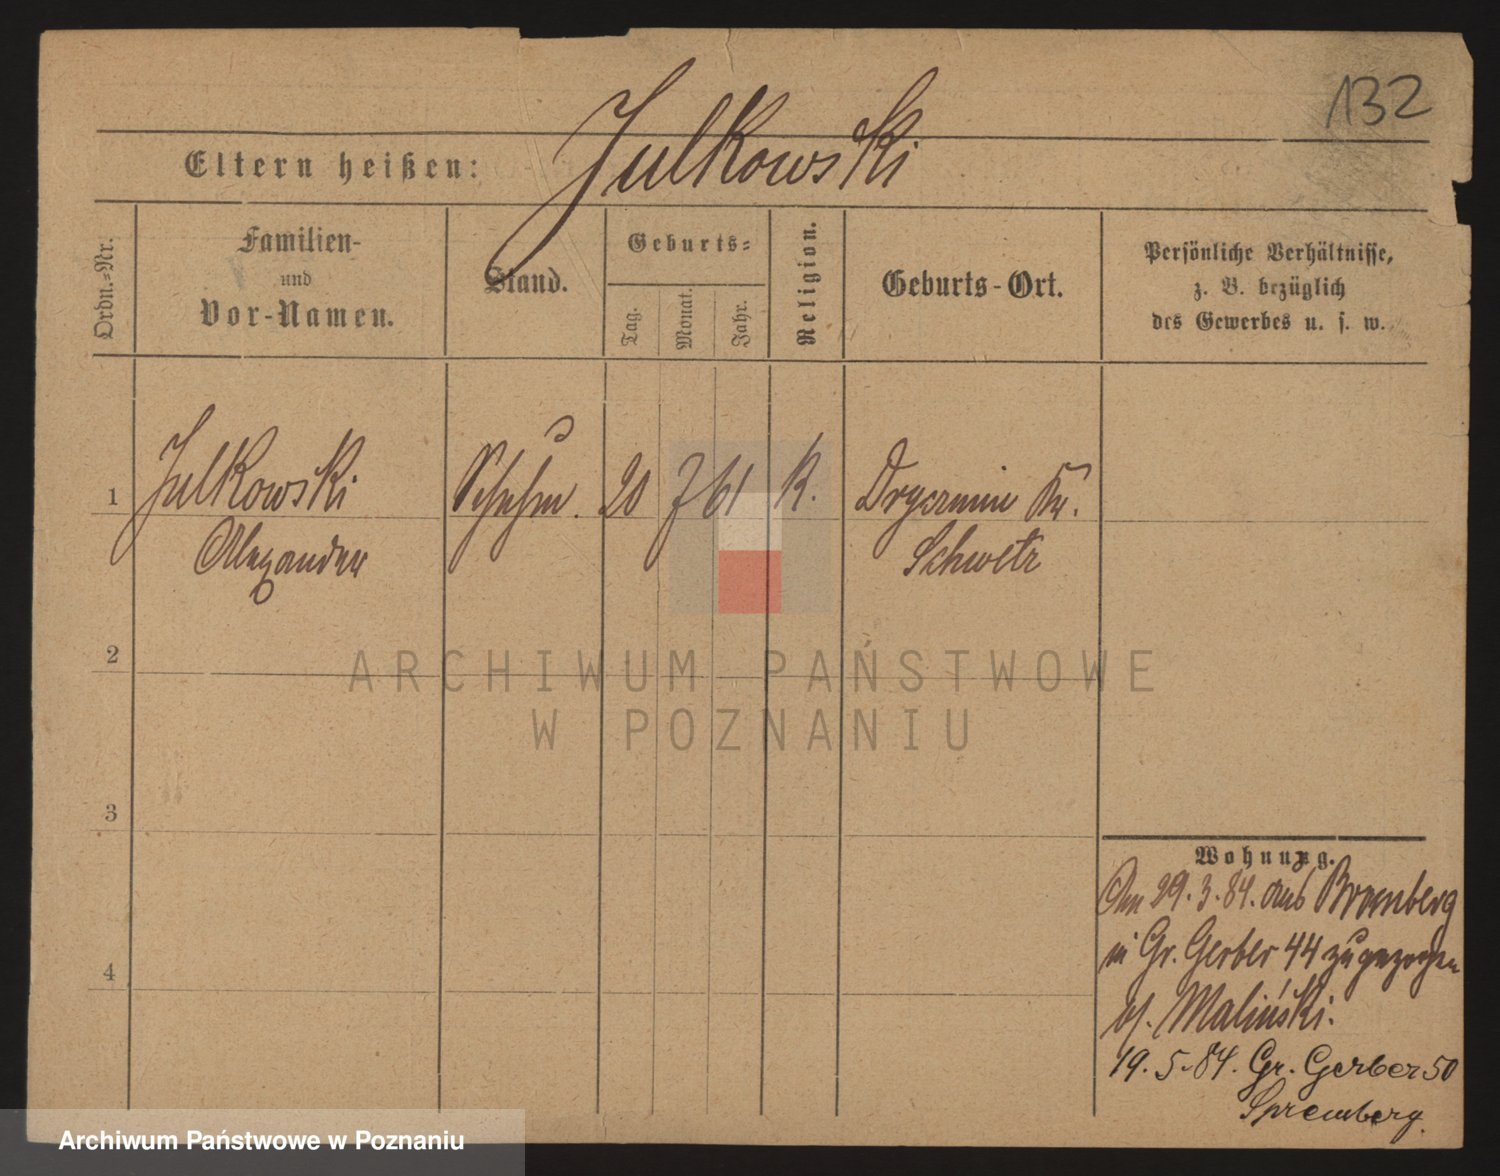 132
Julkowski
Eltern heißen:
Ordn.-Nr.
Familien-
und
Vor-Namen.
Stand.
Geburts-
Tag.
Monat.
Jahr.
Religion.
Geburts-Ort.
Persönliche Verhältnisse,
z. B. bezüglich
des Gewerbes u. s. w.
1
Julkowski
Alexander
20
7
61
K.
Kr.
Schwetz
2
3
4
Wohnung.
Am 29.3.84. aus Bromberg
in Gr. Gerber 44 zugezogen
bf. Maliński.
19.5.84. Gr. Gerber 50
Spremberg.
ARCHIWUM PAŃSTWOWE
W POZNANIU
Archiwum Państwowe w Poznaniu